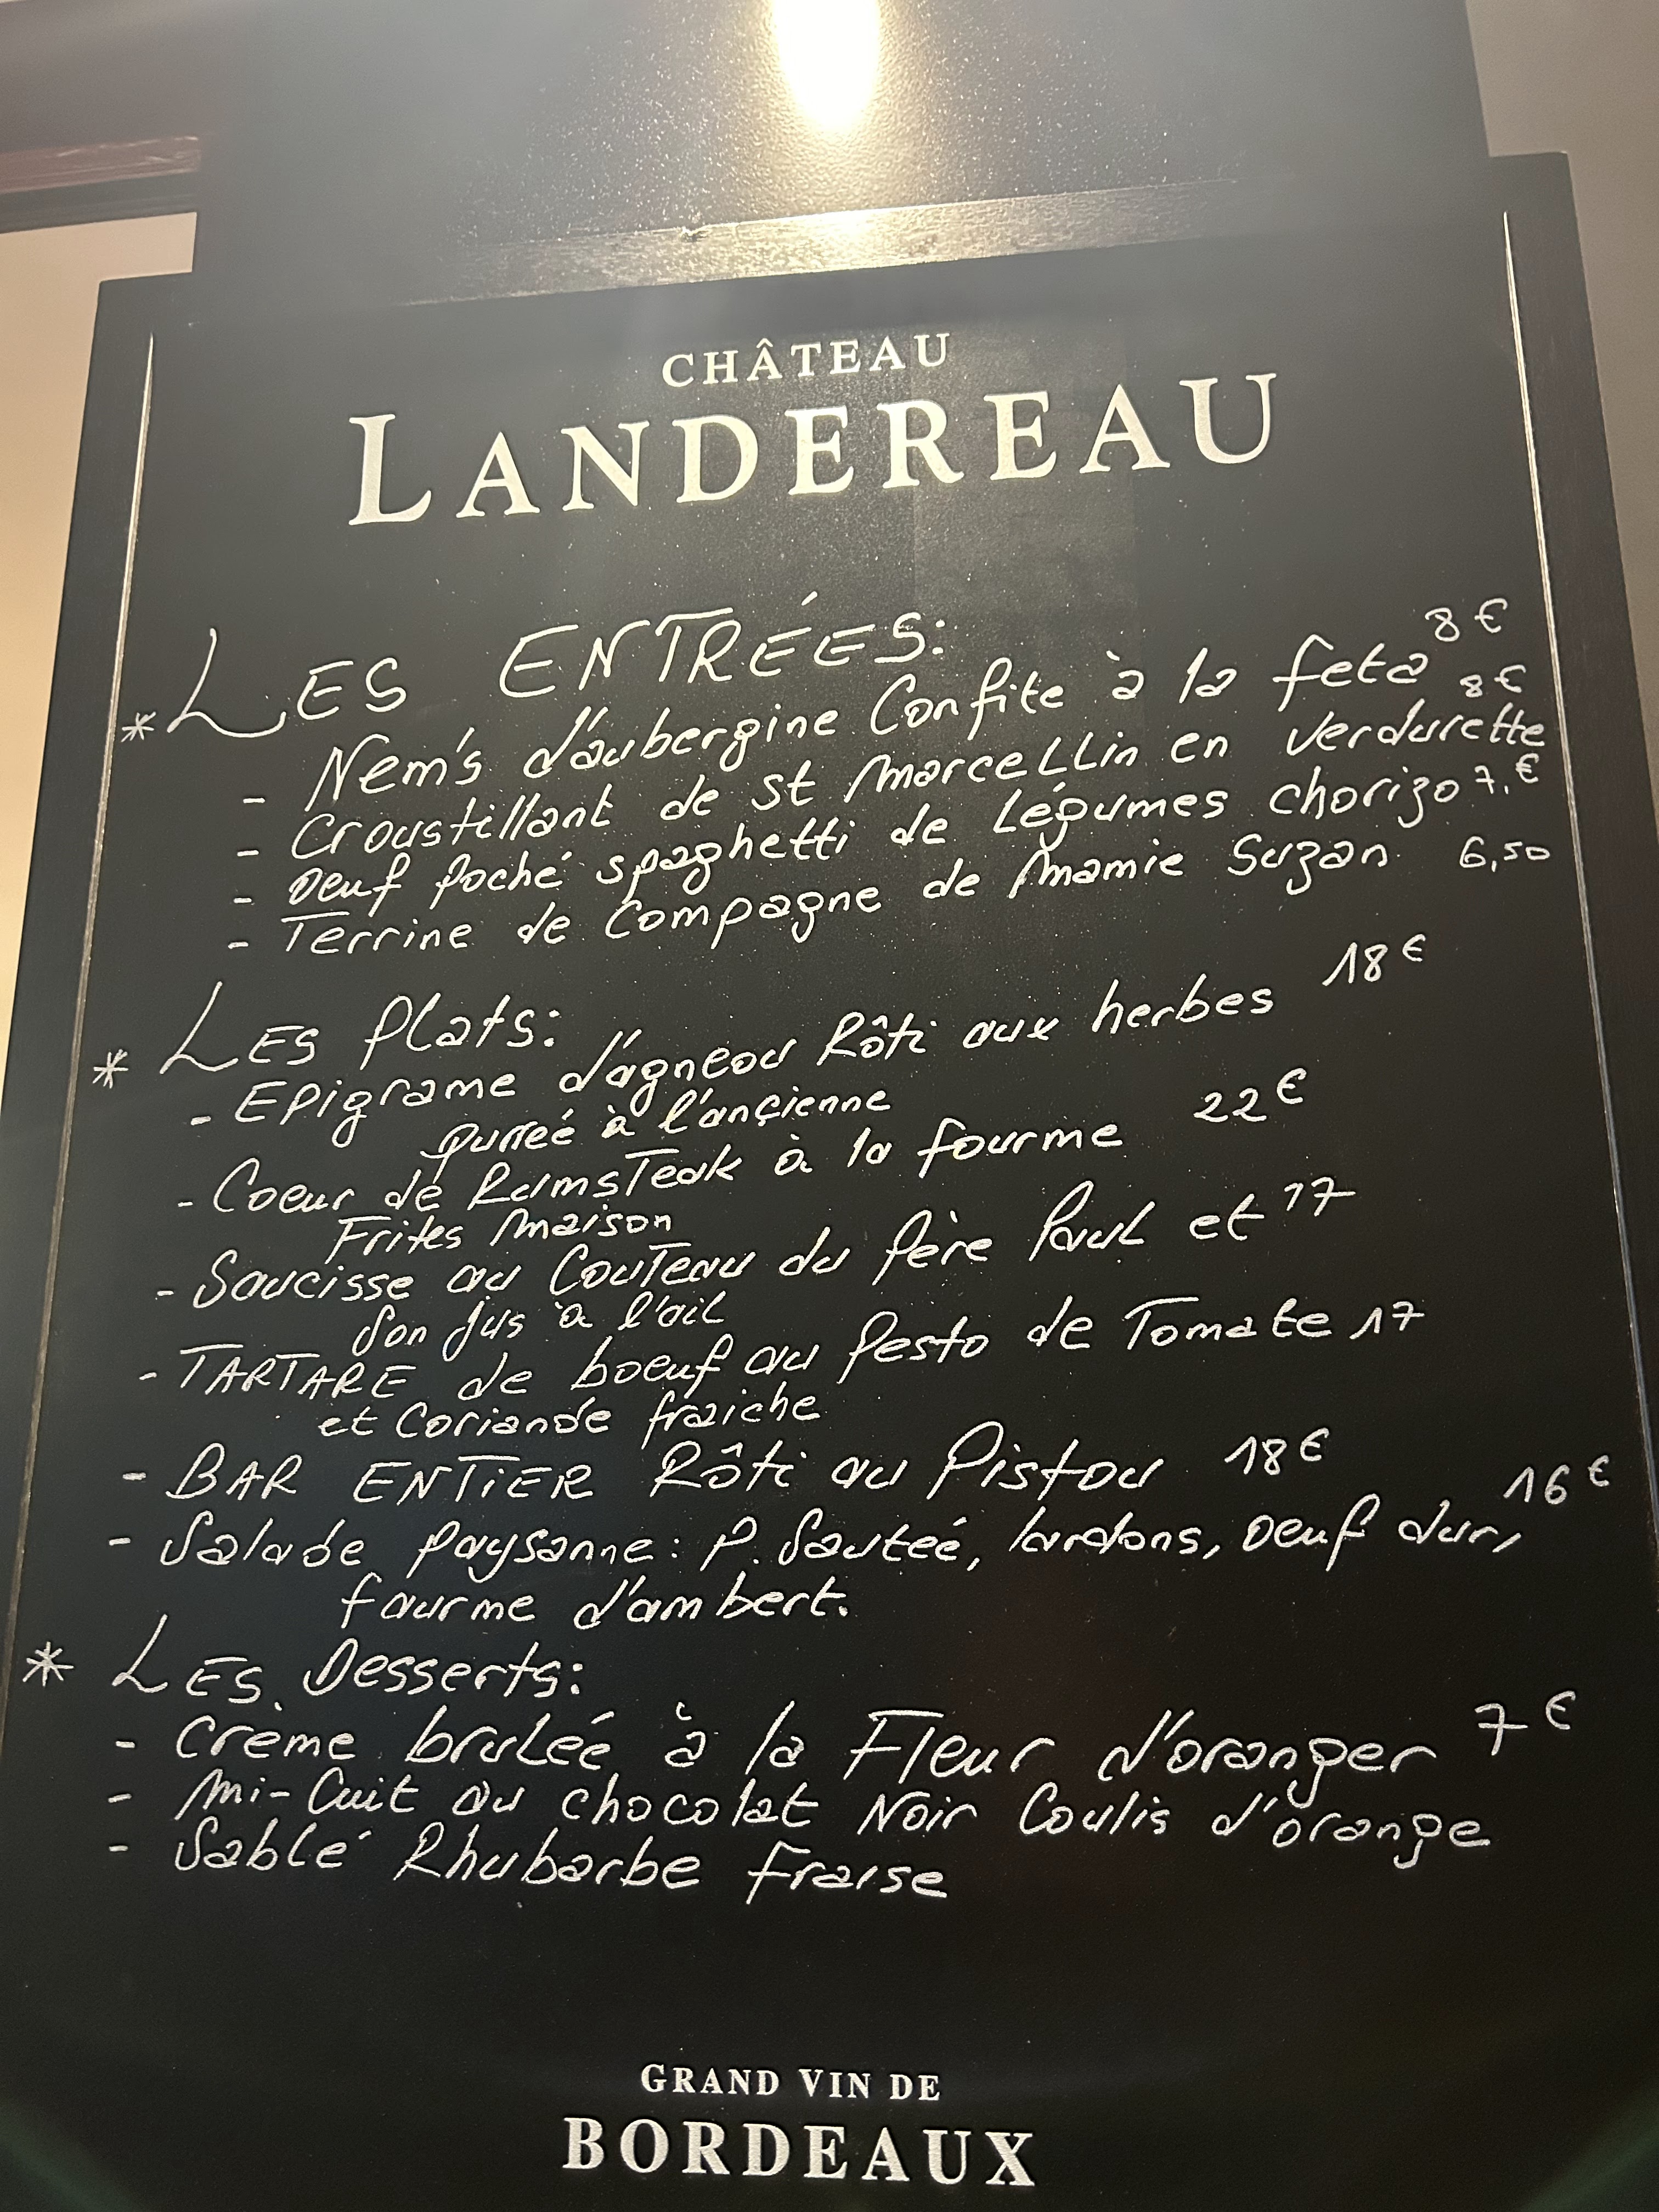 CHÂTEAU
LANDEREAU
* LES ENTRÉES:
- Nem's d'aubergine Confite à la feta 8€
- Croustillant de st Marcellin en verdurette 8€
- Oeuf Poché spaghetti de légumes chorizo 7.€
- Terrine de Campagne de Mamie Suzan 6,50
* LES Plats:
- Epigrame d'agneau Rôti aux herbes 18€
purreé à l'ançienne
- Coeur de RumsTeak à la fourme 22€
Frites Maison
- Saucisse au CouTeau du Père Paul et 17
Son jus à l'ail
- TARTARE de boeuf au Pesto de Tomate 17
et Coriande fraiche
- BAR ENTiER Rôti au Pistou 18€
- Salade Paysanne: P. Sauteé, lardons, oeuf dur, 16€
fourme d'ambert.
* LES Desserts:
- Crème bruleé à la Fleur d'oranger 7€
- Mi-Cuit au chocolat Noir Coulis d'orange
- Sablé Rhubarbe Fraise
GRAND VIN DE
BORDEAUX